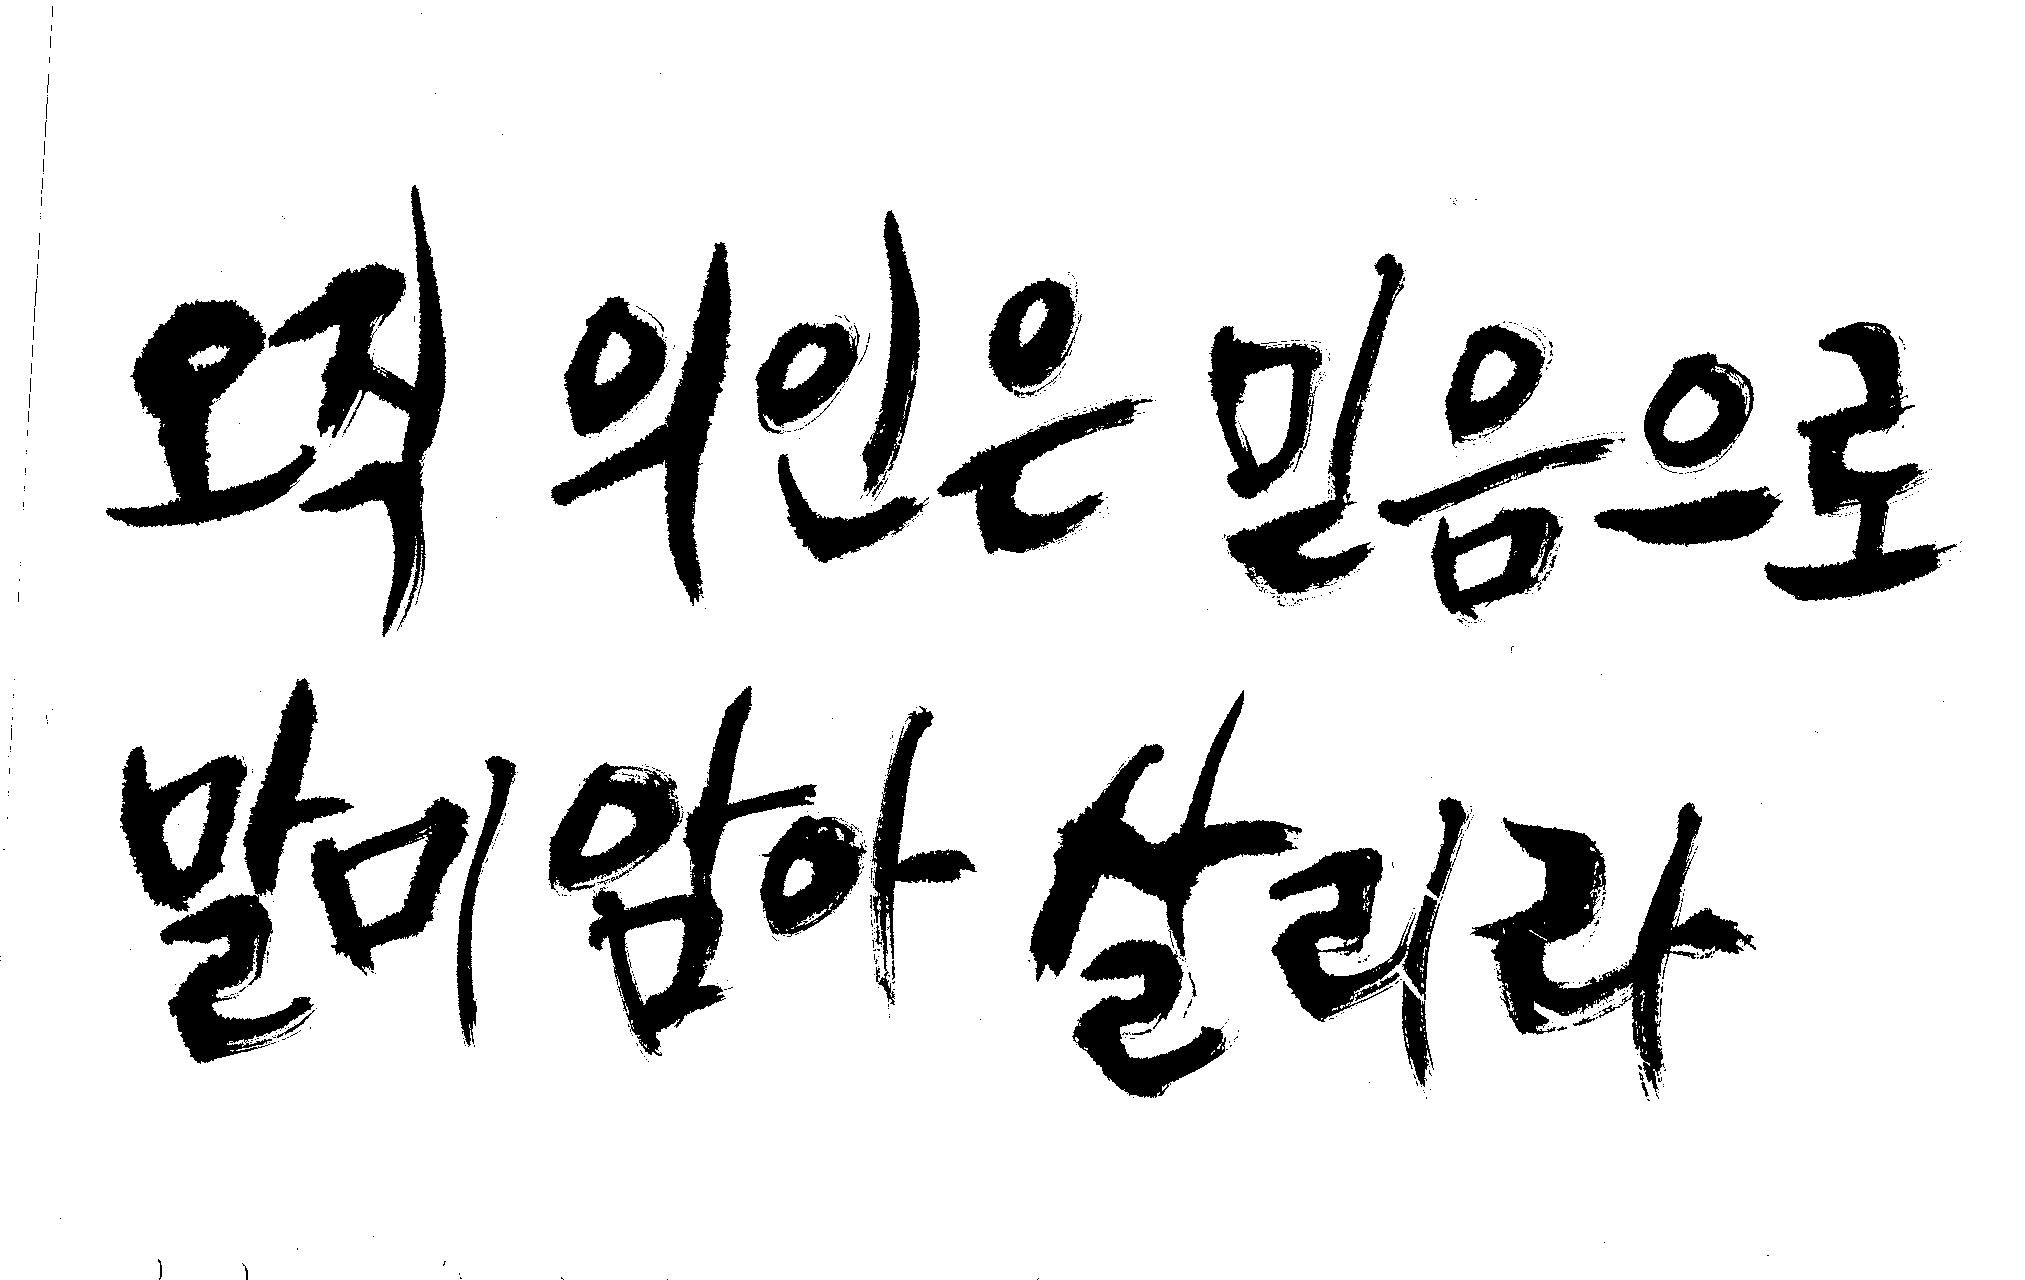 오직 의인은 믿음으로
말미암아 살리라